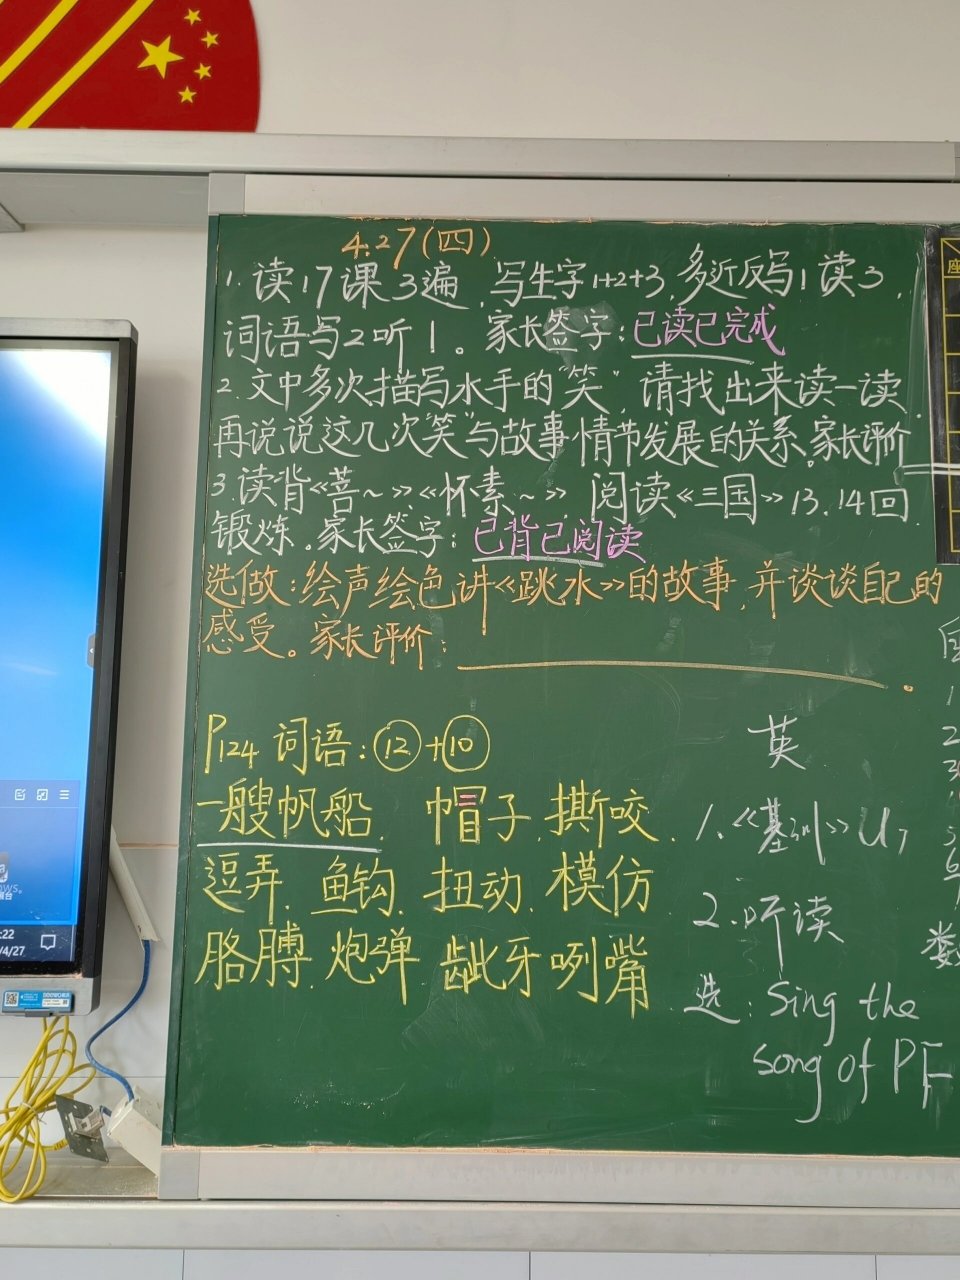 4.27(四)
1.读17课3遍,写生字1+2+3,多近反写1读3,
词语写2听1。家长签字:已读已完成
2.文中多次描写水手的“笑”,请找出来读一读,
再说说这几次“笑”与故事情节发展的关系。家长评价
3.读背《菩~》《怀素~》,阅读《三国》13.14回.
锻炼。家长签字:已背已阅读
选做:绘声绘色讲《跳水》的故事,并谈谈自己的
感受。家长评价:
P124 词语:⑫+⑩
一艘帆船. 帽子.撕咬.
逗弄. 鱼钩. 扭动. 模仿
胳膊. 炮弹. 龇牙咧嘴
英
1.《基训》U7
2.听读
选:Sing the
song of PF
数
:22
/4/27
座